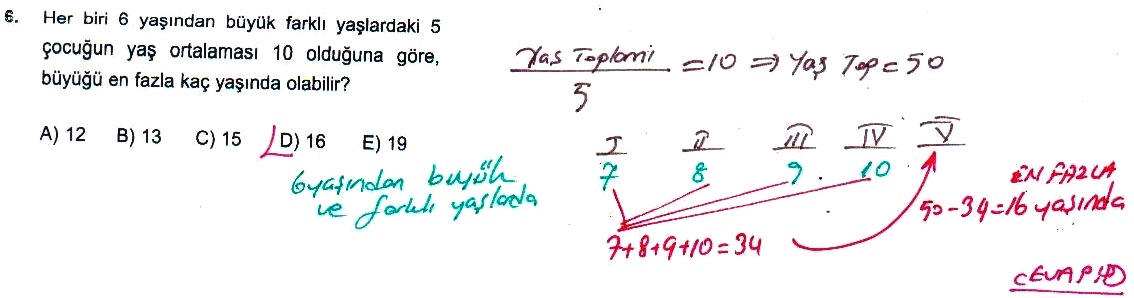 6. Her biri 6 yaşından büyük farklı yaşlardaki 5
çocuğun yaş ortalaması 10 olduğuna göre,
büyüğü en fazla kaç yaşında olabilir?
A) 12 B) 13 C) 15 D) 16 E) 19
Yaş Toplamı
5
=10 ⇒ Yaş Top = 50
I II III IV V
7 8 9 10
6 yaşından büyük
ve farklı yaşlarda
7+8+9+10=34
EN FAZLA
50-34=16 yaşında
CEVAP:D